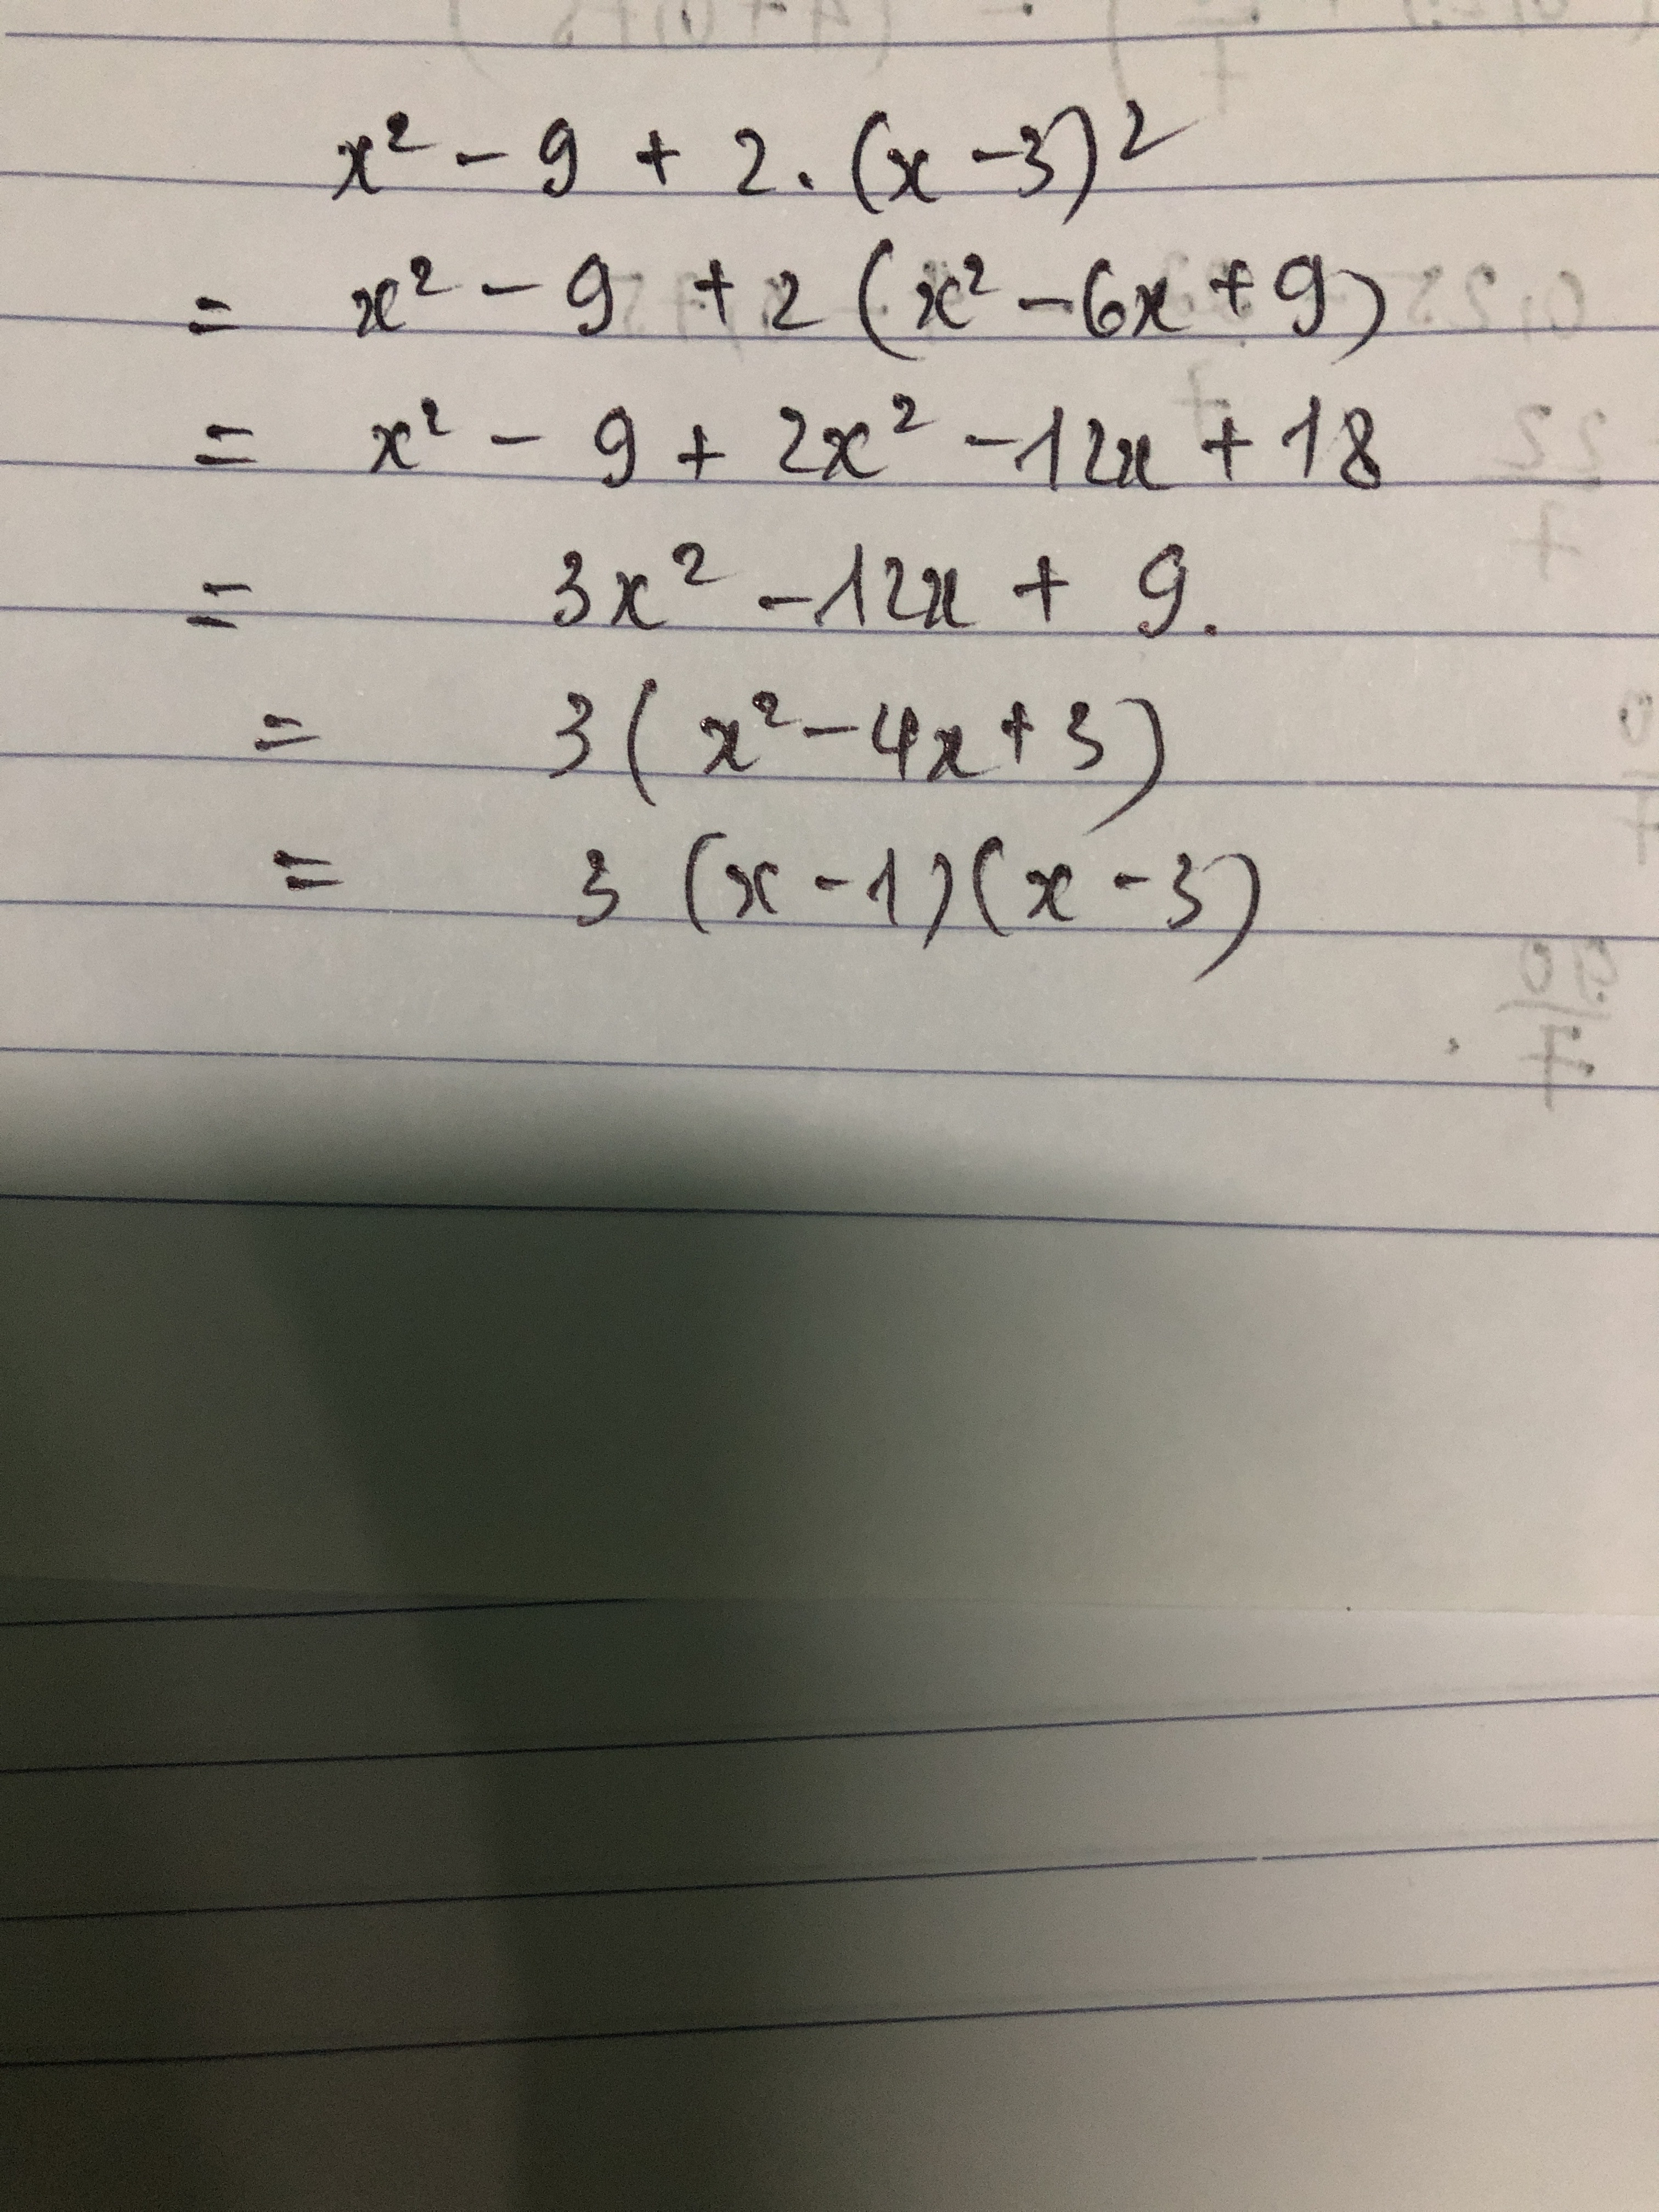 x² - 9 + 2 . (x - 3)²
= x² - 9 + 2 (x² - 6x + 9)
= x² - 9 + 2x² - 12x + 18
= 3x² - 12x + 9.
= 3 (x² - 4x + 3)
= 3 (x - 1) (x - 3)